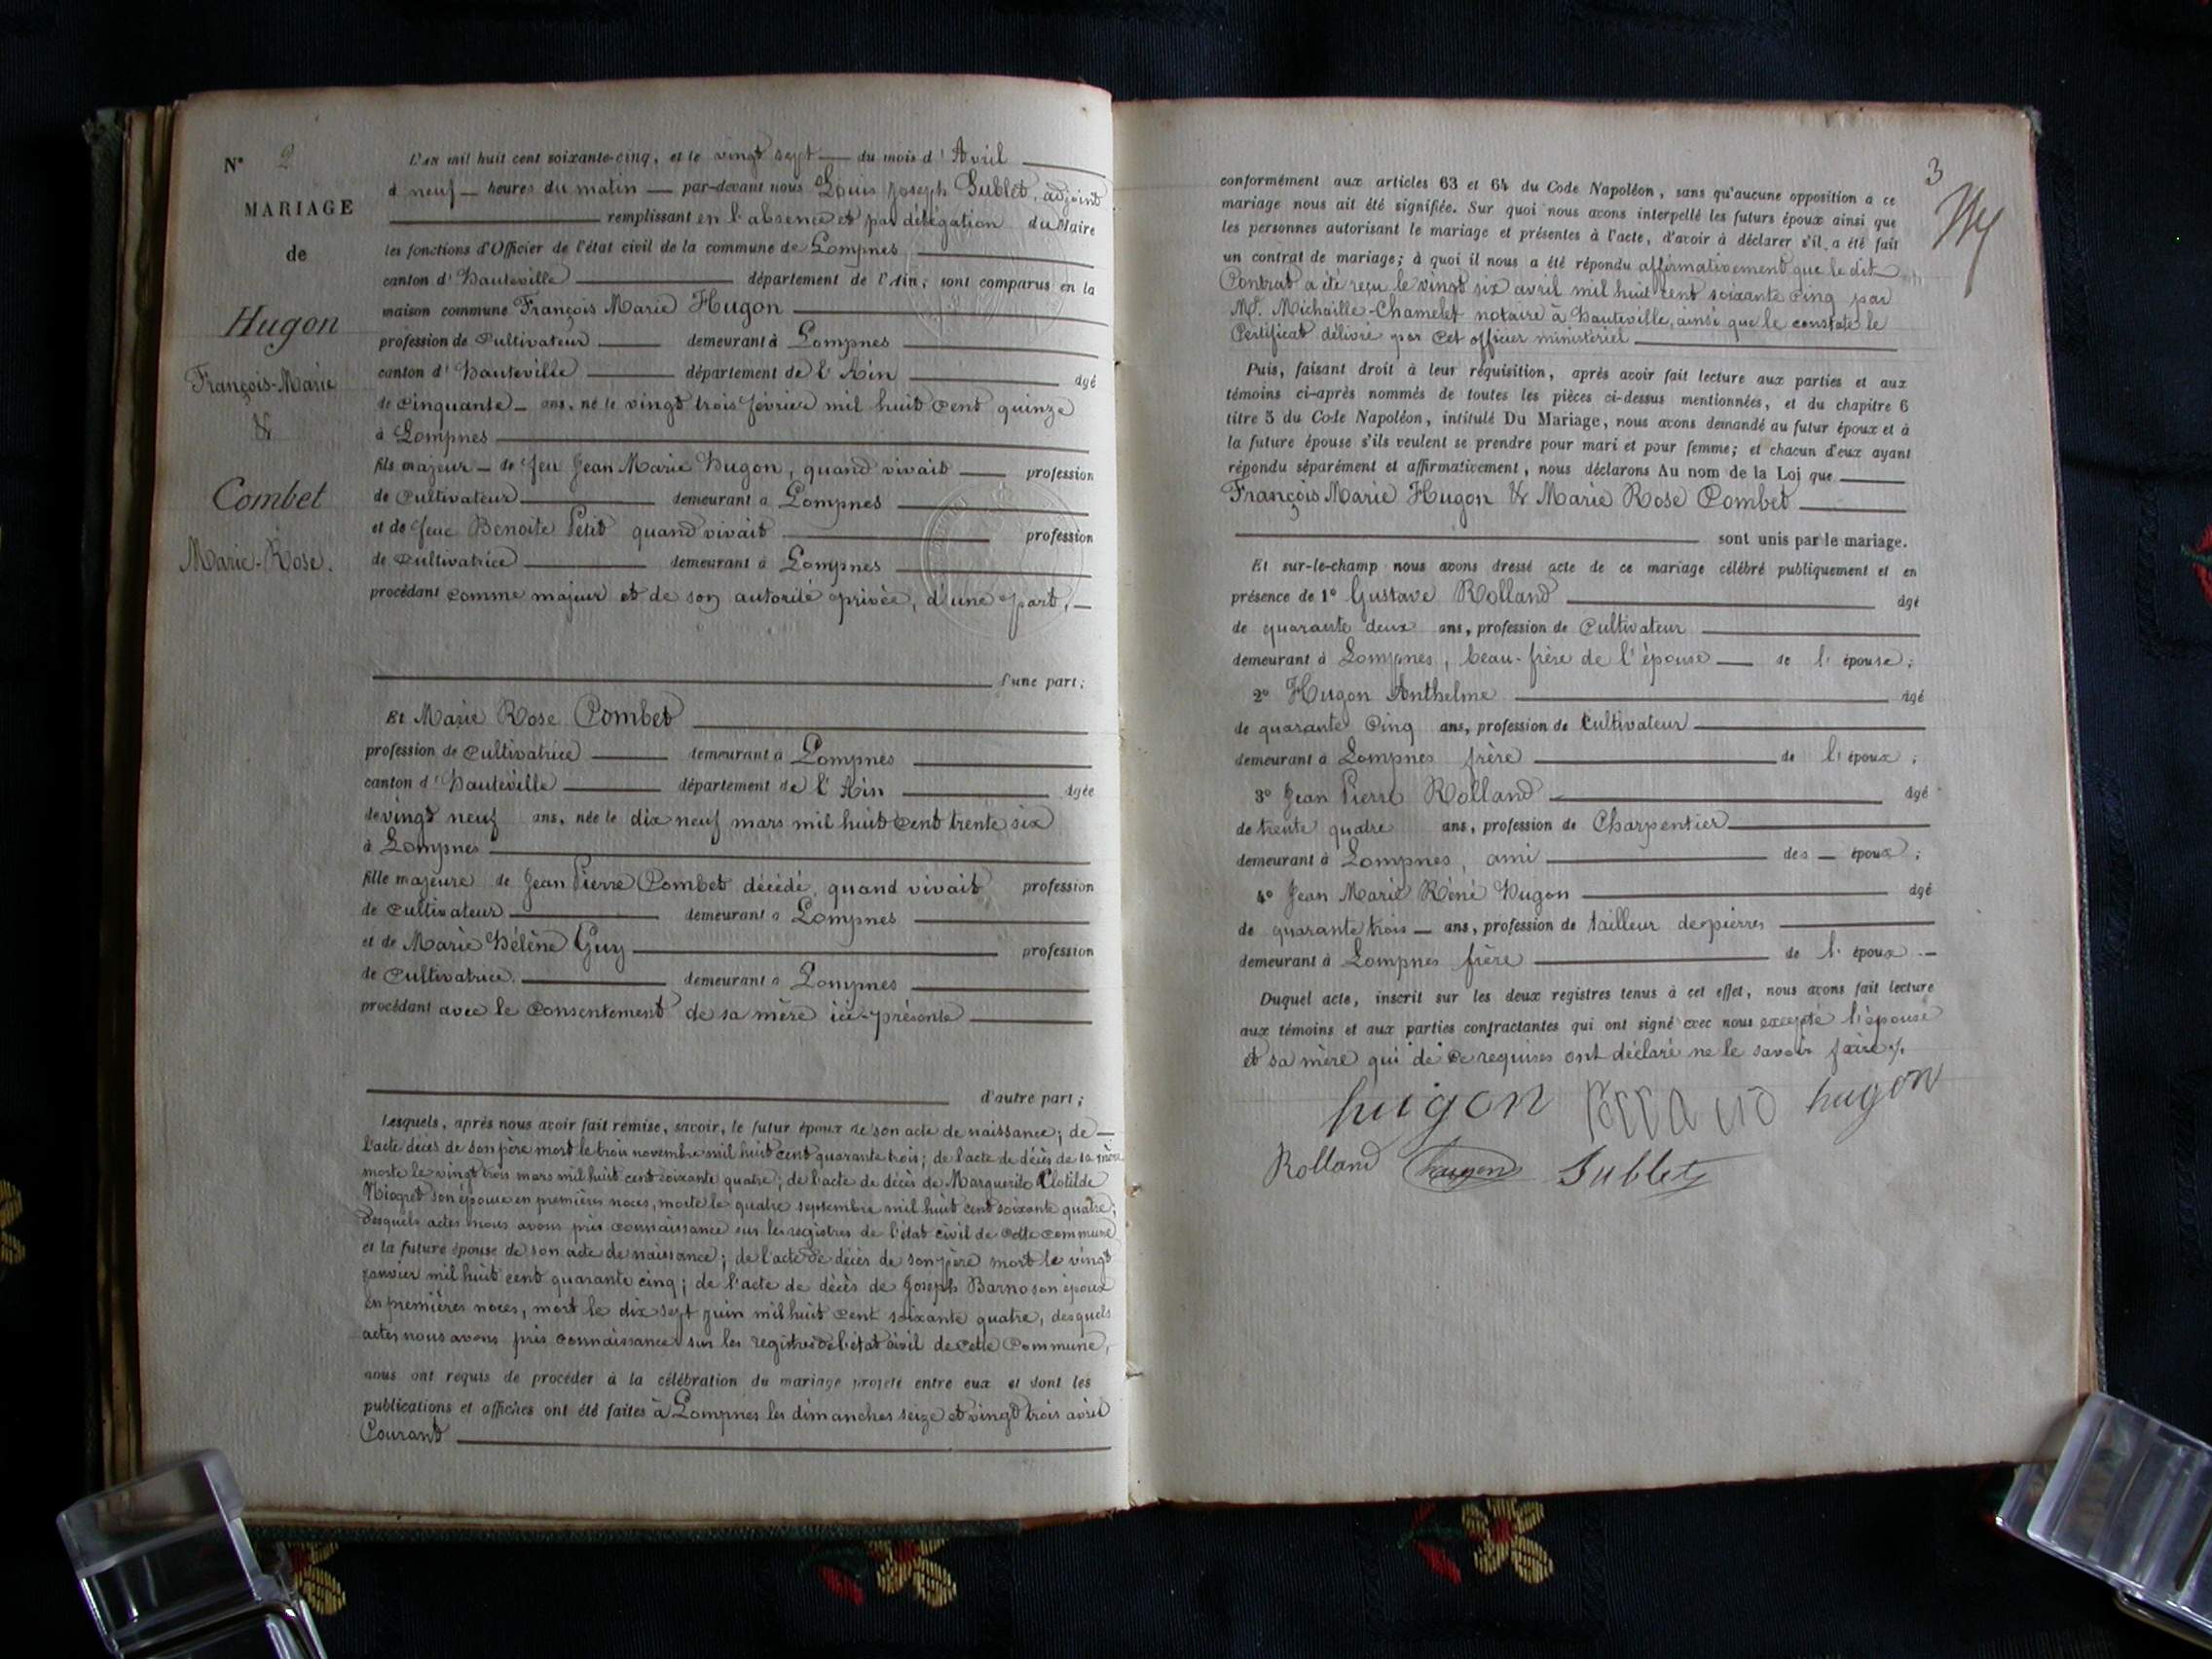 N° 2
MARIAGE
de
Hugon
François-Marie
&
Combet
Marie-Rose.
L'an mil huit cent soixante-cinq, et le vingt sept du mois d'Avril
à neuf heures du matin par-devant nous Louis Joseph Sublet, adjoint
remplissant en l'absence et par délégation du Maire
les fonctions d'Officier de l'état civil de la commune de Lompnes
canton d'Hauteville département de l'Ain; sont comparus en la
maison commune François Marie Hugon
profession de Cultivateur demeurant à Lompnes
canton d'Hauteville département de l'Ain âgé
de Cinquante ans, né le vingt trois février mil huit cent quinze
à Lompnes
fils majeur de feu Jean Marie Hugon, quand vivait profession
de Cultivateur demeurant à Lompnes
et de feue Benoîte Petit quand vivait profession
de Cultivatrice demeurant à Lompnes
procédant comme majeur et de son autorité privée, d'une part,
d'une part;
Et Marie Rose Combet
profession de Cultivatrice demeurant à Lompnes
canton d'Hauteville département de l'Ain âgée
de vingt neuf ans, née le dix neuf mars mil huit cent trente six
à Lompnes
fille majeure de Jean Pierre Combet décédé, quand vivait profession
de Cultivateur demeurant à Lompnes
et de Marie Hélène Guy profession
de Cultivatrice demeurant à Lompnes
procédant avec le consentement de sa mère ici-présente
d'autre part;
Lesquels, après nous avoir fait remise, savoir, le futur époux de son acte de naissance; de
l'acte décès de son père mort le trois novembre mil huit cent quarante trois; de l'acte de décès de sa mère
morte le vingt trois mars mil huit cent soixante quatre; de l'acte de décès de Marguerite Clotilde
Niogret son épouse en premières noces, morte le quatre septembre mil huit cent soixante quatre;
desquels actes nous avons pris connaissance sur les registres de l'état civil de cette commune
et la future épouse de son acte de naissance; de l'acte de décès de son père mort le vingt
janvier mil huit cent quarante cinq; de l'acte de décès de Joseph Barno son époux
en premières noces, mort le dix sept juin mil huit cent soixante quatre, desquels
actes nous avons pris connaissance sur les registres de l'état civil de cette Commune,
nous ont requis de procéder à la célébration du mariage projeté entre eux et dont les
publications et affiches ont été faites à Lompnes les dimanches seize et vingt trois avril
Courant
3
conformément aux articles 63 et 64 du Code Napoléon, sans qu'aucune opposition à ce
mariage nous ait été signifiée. Sur quoi nous avons interpellé les futurs époux ainsi que
les personnes autorisant le mariage et présentes à l'acte, d'avoir à déclarer s'il a été fait
un contrat de mariage; à quoi il nous a été répondu affirmativement que le dit
Contrat a été reçu le vingt six avril mil huit cent soixante cinq par
Me. Michaille-Chamelet notaire à Hauteville, ainsi que le constate le
Certificat délivré par cet officier ministériel
Puis, faisant droit à leur réquisition, après avoir fait lecture aux parties et aux
témoins ci-après nommés de toutes les pièces ci-dessus mentionnées, et du chapitre 6
titre 5 du Code Napoléon, intitulé Du Mariage, nous avons demandé au futur époux et à
la future épouse s'ils veulent se prendre pour mari et pour femme; et chacun d'eux ayant
répondu séparément et affirmativement, nous déclarons Au nom de la Loi que
François Marie Hugon & Marie Rose Combet
sont unis par le mariage.
Et sur-le-champ nous avons dressé acte de ce mariage célébré publiquement et en
présence de 1° Gustave Rolland âgé
de quarante deux ans, profession de Cultivateur
demeurant à Lompnes, beau-frère de l'épouse de l'épouse;
2° Hugon Anthelme âgé
de quarante cinq ans, profession de Cultivateur
demeurant à Lompnes frère de l'époux;
3° Jean Pierre Rolland âgé
de trente quatre ans, profession de Charpentier
demeurant à Lompnes, ami des époux;
4° Jean Marie Réné Hugon âgé
de quarante trois ans, profession de tailleur de pierres
demeurant à Lompnes frère de l'époux.
Duquel acte, inscrit sur les deux registres tenus à cet effet, nous avons fait lecture
aux témoins et aux parties contractantes qui ont signé avec nous excepté l'épouse
et sa mère qui de ce requises ont déclaré ne le savoir faire.
hugon Rolland hugon
Rolland hugon Sublet